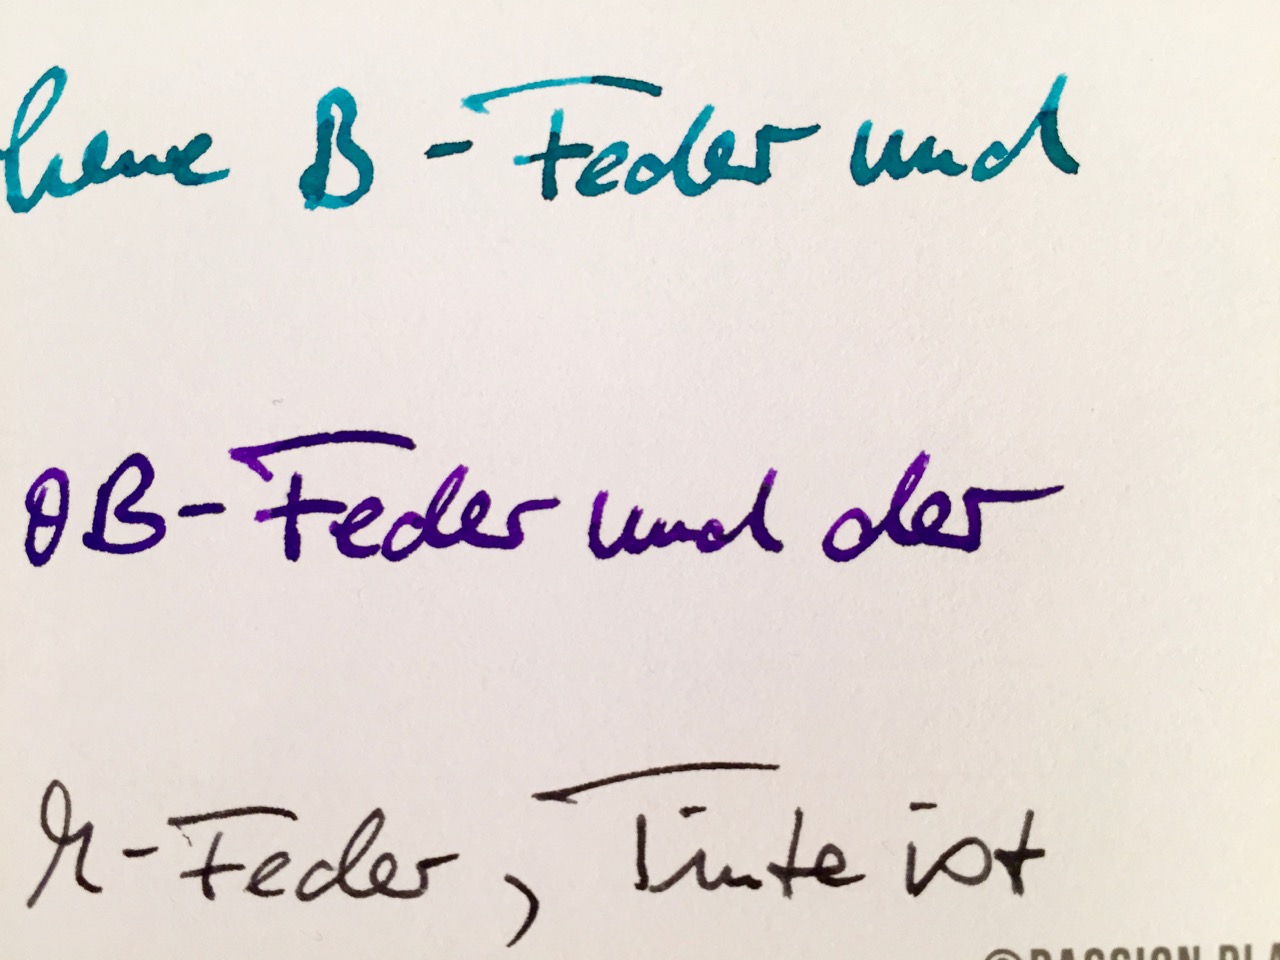 B - Feder und
OB - Feder und der
M - Feder, Tinte ist
©PASSION PLA